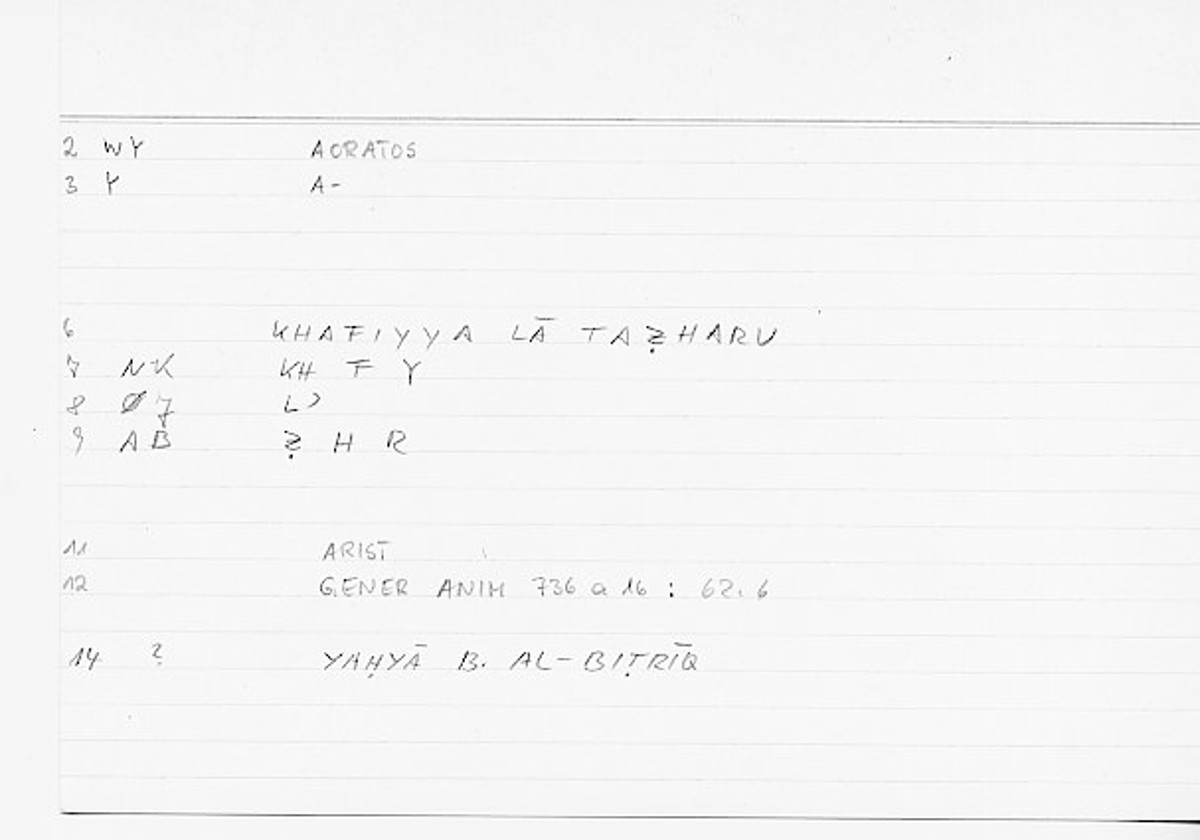 2 WY AORATOS
3 Y A-
6 KHAFIYYA LĀ TAẒHARU
7 NK KH F Y
8 Ø7 Lʾ
9 AB Ẓ H R
11 ARIST
12 GENER ANIM 736 a 16 : 62.6
14 ? YAḤYĀ B. AL-BIṬRĪQ